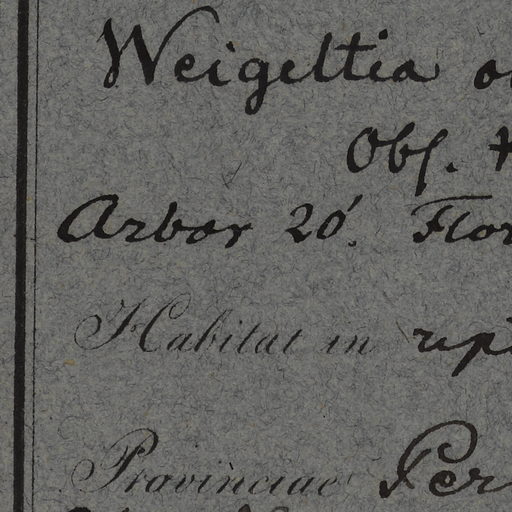 Weigeltia
Obs.
Arbor 20'. Flor
Habitat in
Provinciae Per